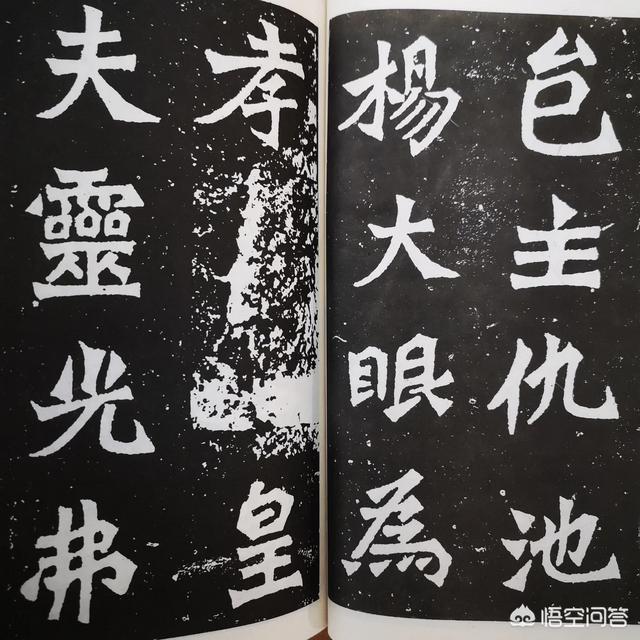 邑主仇池
楊大眼為
孝皇
夫靈光弗
悟空问答